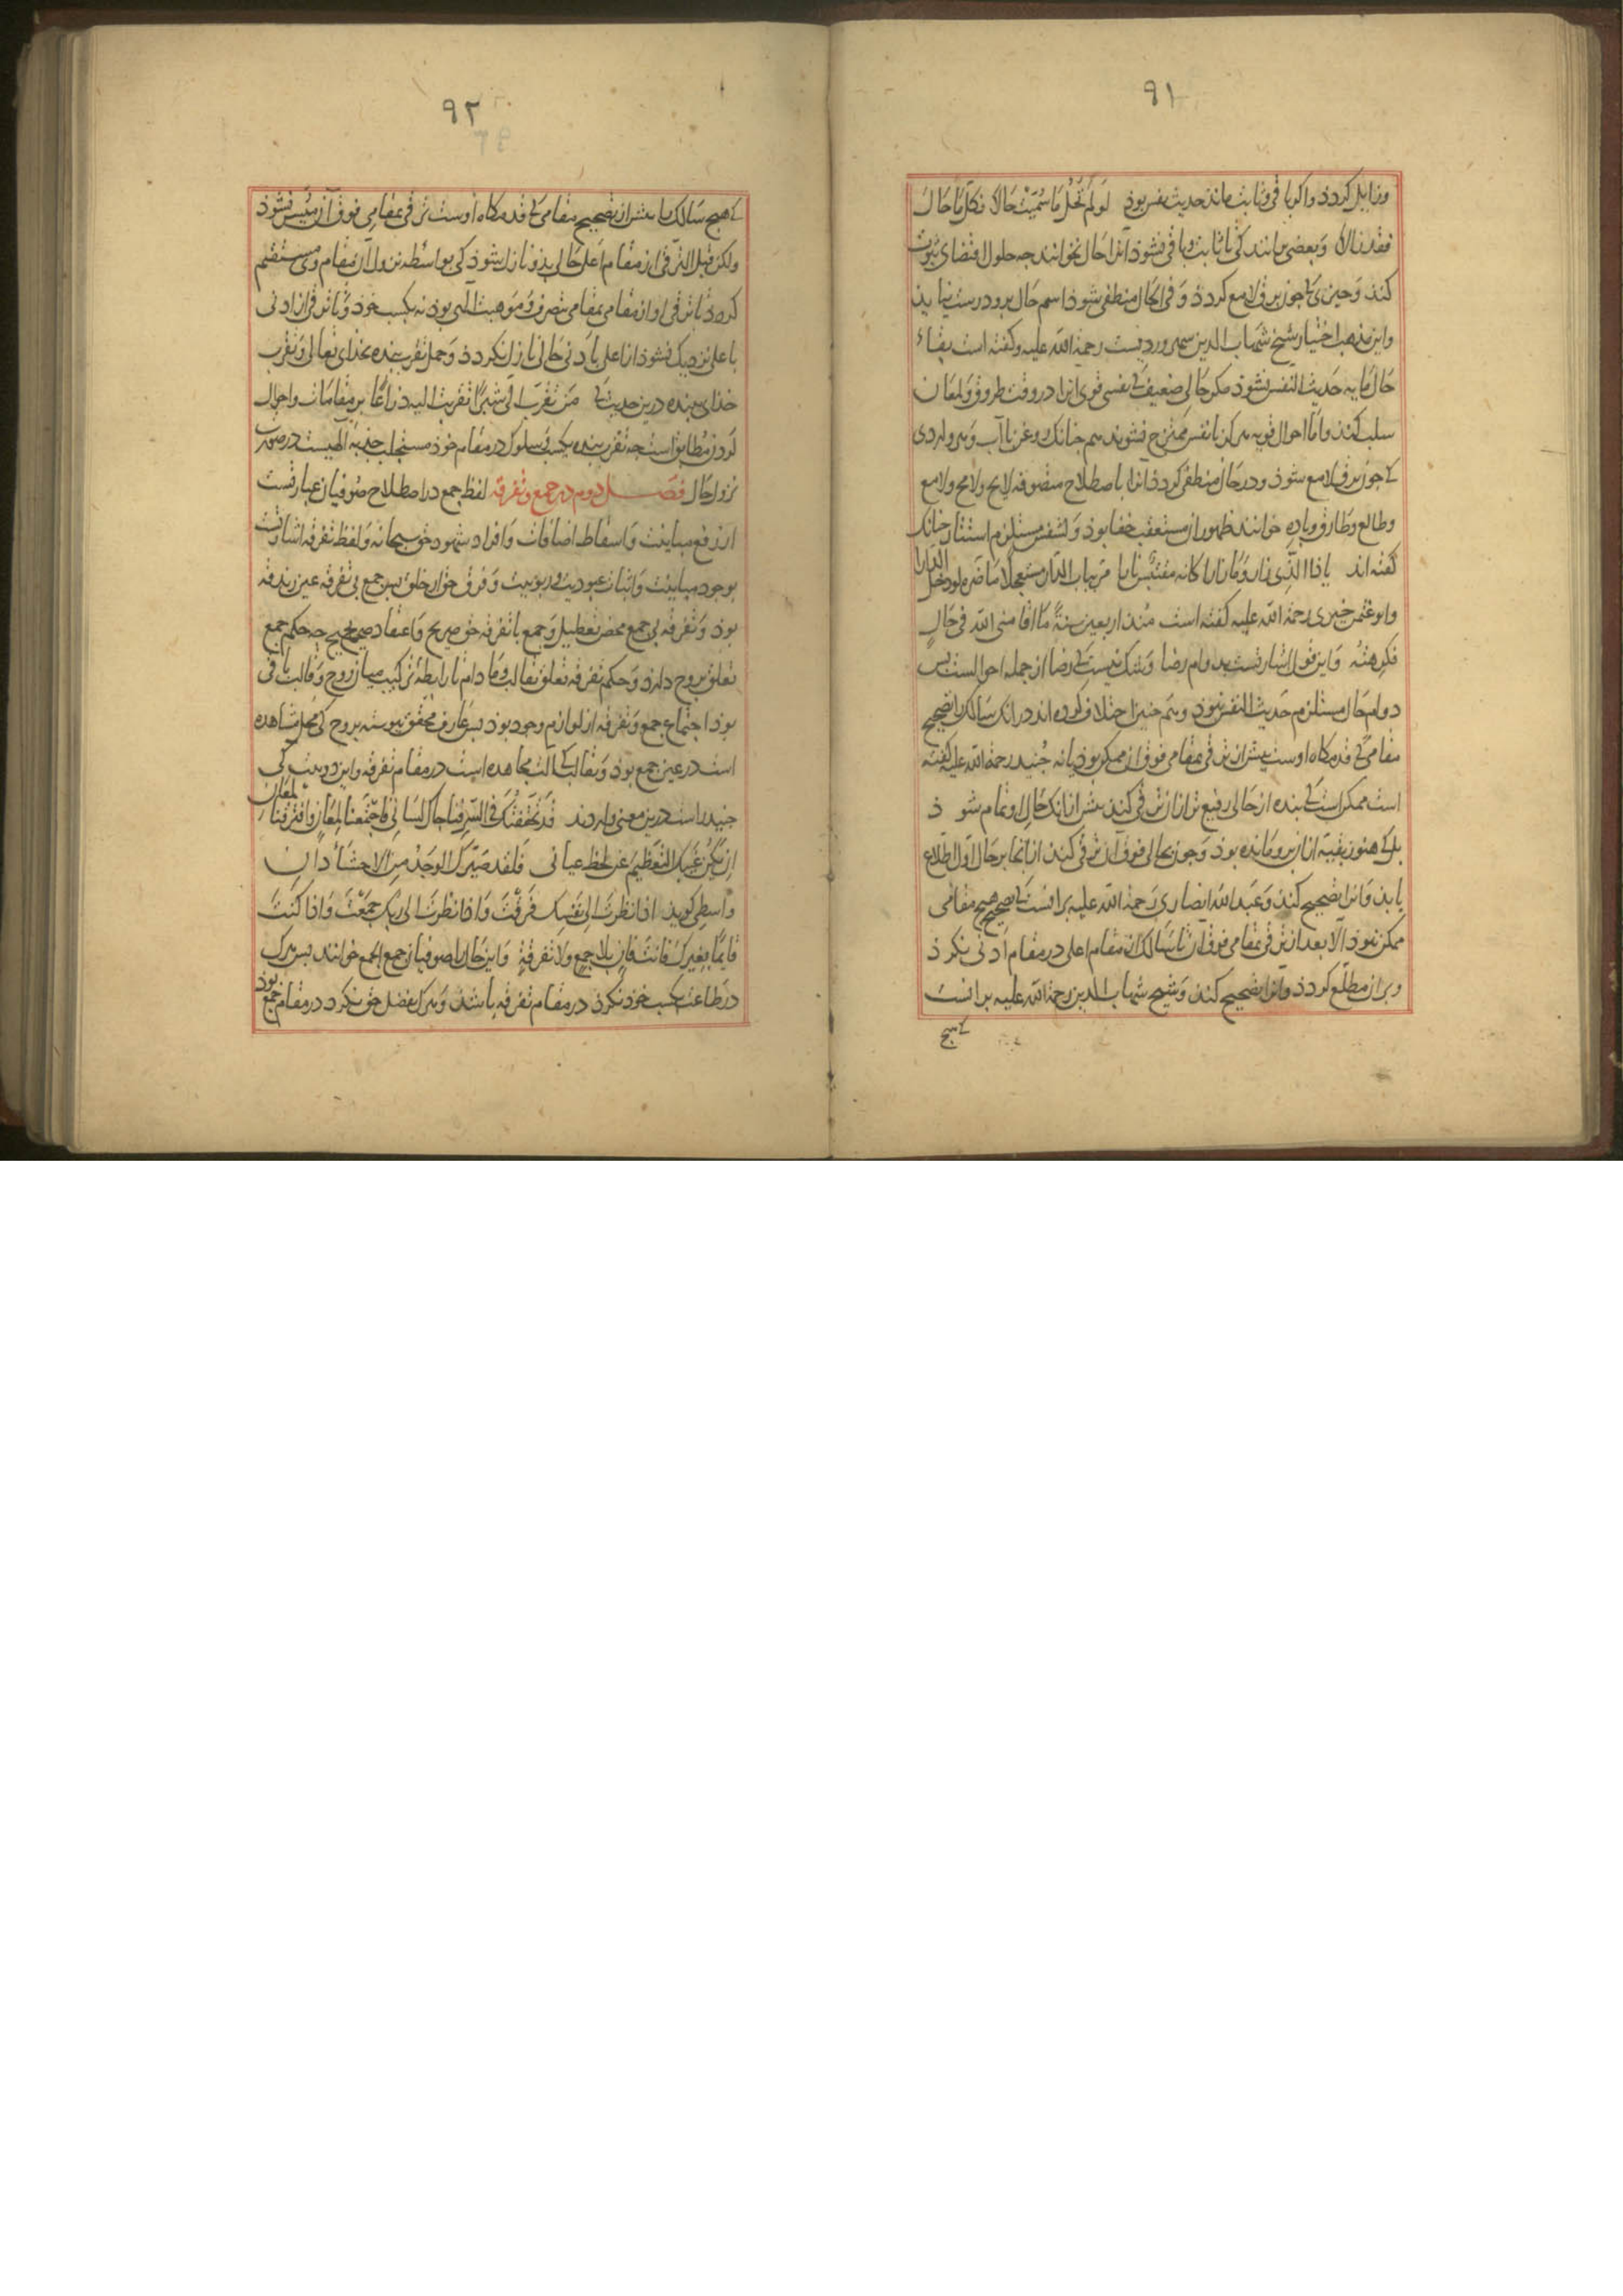 ٩١
وزایل کردذ واکر باقی وثابت ماند حدیث نفس بوذ لَو لَم تَحُل مَا سُمّیَت حَالاً فکلّ مَا حَالَ
فقد زالا وَبعضی برانند کی تا ثابت وباقی نشوذ انرا حال نخوانند جه حلول اقتضای ثبوت
کنذ وَجیزی کی جون برق لامع کردذ وَفی الحال منطفی شوذ اسم حال برو درست نیایذ
واین مذهب اختیار شیخ شهاب الدین سهروردیست رحمة الله علیه وکفته است بقاء
حَال مَا به حَدیث النفس نشوذ مکر حَالی ضعیف کی نفسی قوی انرا در وقت طروق وَلمعَان
سلب کنذ وامّا احوال قویه هرکز با نفس ممتزج نشوند هم جنانک روغن با آب وَهر واردی
کی جون برق لامع شوذ ودر حَال منطفی کردذ انرا باصطلاح متصوفه لایح ولامح ولامع
وطالع وطَارق وباده خوانند ظهور او مستعقب خفا بوذ وَکشفش مستلزم استتار جنانک
کفته اند یاذا الّذی زار وَمَا زارا کانه مقتبس نارا مَرّ بباب الدّار مستعجلا مَا ضرّه لو دخل الدارا
وابو عثمن حیری رحمة الله علیه کفته است مُنذ اربعین سنةً مَا اقامنی الله فی حَالٍ
فکرهتُه وَاین قول اشارتست بدوام رضا وَشک نیست کی رضا از جمله احوالست بس
دوام حَال مستلزم حَدیث النفس نبوذ وَهم جنین اختلاف کرده اند در انک سَالک را تصحیح
مقامی کی قدمکاه اوست بیش از ترقی بمقامی فوق ان ممکن بوذ یا نه جُنید رحمة الله علیه کفته
است ممکن است کی بنده از حَالی رفیع تر از ان ترقی کنذ بیش از انک حَال او تمام شوذ
بل کی هنوز بقیتی از ان برو مَانده بوذ وَجون بحالی فوق ان ترقی کنذ از انجا بر حَال اوّل اطلاع
یابذ وَانرا تصحیح کنذ وَعَبد الله انصاری رَحمة الله علیه بر انست کی تصحیح هیج مقامی
ممکن نبوذ الّا بعد از ترقی بمقامی فوق ان تا سَالک از مقام اعلی در مقام اَدنی نکرذ
وبر ان مطلع کردذ وانرا تصحیح کنذ وَشیخ شهاب الدین رحمة الله علیه بر انست
کی هیج
٩٢
کی هیج سَالک را بیش از تصحیح مقامی کی قدمکاه اوست ترقی بمقامی فوق آن میسر نشوذ
ولکن قبل الترقی از مقام اعلی حَالی بذو نازل شوذ کی بواسطه نزول آن مقام وی مستقیم
کردذ تا ترقی او از مقامی بمقامی بتصرف وَمَوهبت الهی بوذ نه بکسب خوذ وَتا ترقی از ادنی
باعلی نزدیک نشوذ از اعلی بادنی حَالی نازل نکردذ وَحمل تقرب بنده بخذای تعالی وَتقرب
خذای ببنده درین حدیث کی مَن تقرّب الیّ شبرًا تقربت الیه ذراعًا بر مقامَات واحوال
کردن مطابق است جه تقرب بنده بکسب سلوک در مقام خوذ مستجلب جذبه الهیست در صورت
نزول حَال فصـــل دوم در جمع وتفرقه لفظ جمع در اصطلاح صوفیان عبارتست
از رفع مباینت وَاسقاط اضافات وَافراد شهود حق سبحانه وَلفظ تفرقه اشارتست
بوجود مباینت وَاثبات عبودیت وربوبیت وَفرق حق از خلق بس جمع بی تفرقه عین زندقه
بوذ وَتفرقه بی جمع محض تعطیل وَجمع با تفرقه حق صریح وَاعتقاد صحیح جه حکم جمع
تعلق بروح دارذ وَحکم تفرقه تعلق بقالب ومَا دام تا رابطه ترکیب میان روح وَقالب باقی
بوذ اجتماع جمع وَتفرقه از لوازم وجود بوذ بس عَارف محقق بیوسته بروح کی محل مشاهده
است در عین جمع بوذ وَبقالب کی الت مجاهده است در مقام تفرقه واین دو بیت کی
جنید راست درین معنی واردند قد تَحققتُکَ فی السّرِ فناجاک لسَانی فاجتمَعنا لِمعَانٍ وافترقنا لِمعَان
اِن یَکُن غیّبک التعَظیم عن لحظ عیانی فَلقد صَیّرک الوجدُ من الاحشاء دانِ
واسطی کویذ اذا نظرتَ الی نفسِک فَرقتَ وَاذا نظرتَ الی ربّک جمَعتَ وَاذا کنتَ
قایمًا بغیرک فَانتَ فانٍ بلا جمعٍ ولا تفرقةٍ وَاین حَال را صوفیان جمع الجمع خوانند بس هرک
در طاعت بکسب خوذ نکرذ در مقام تفرقه باشذ وَهرک بفضل حق نکرد در مقام جمع بوذ